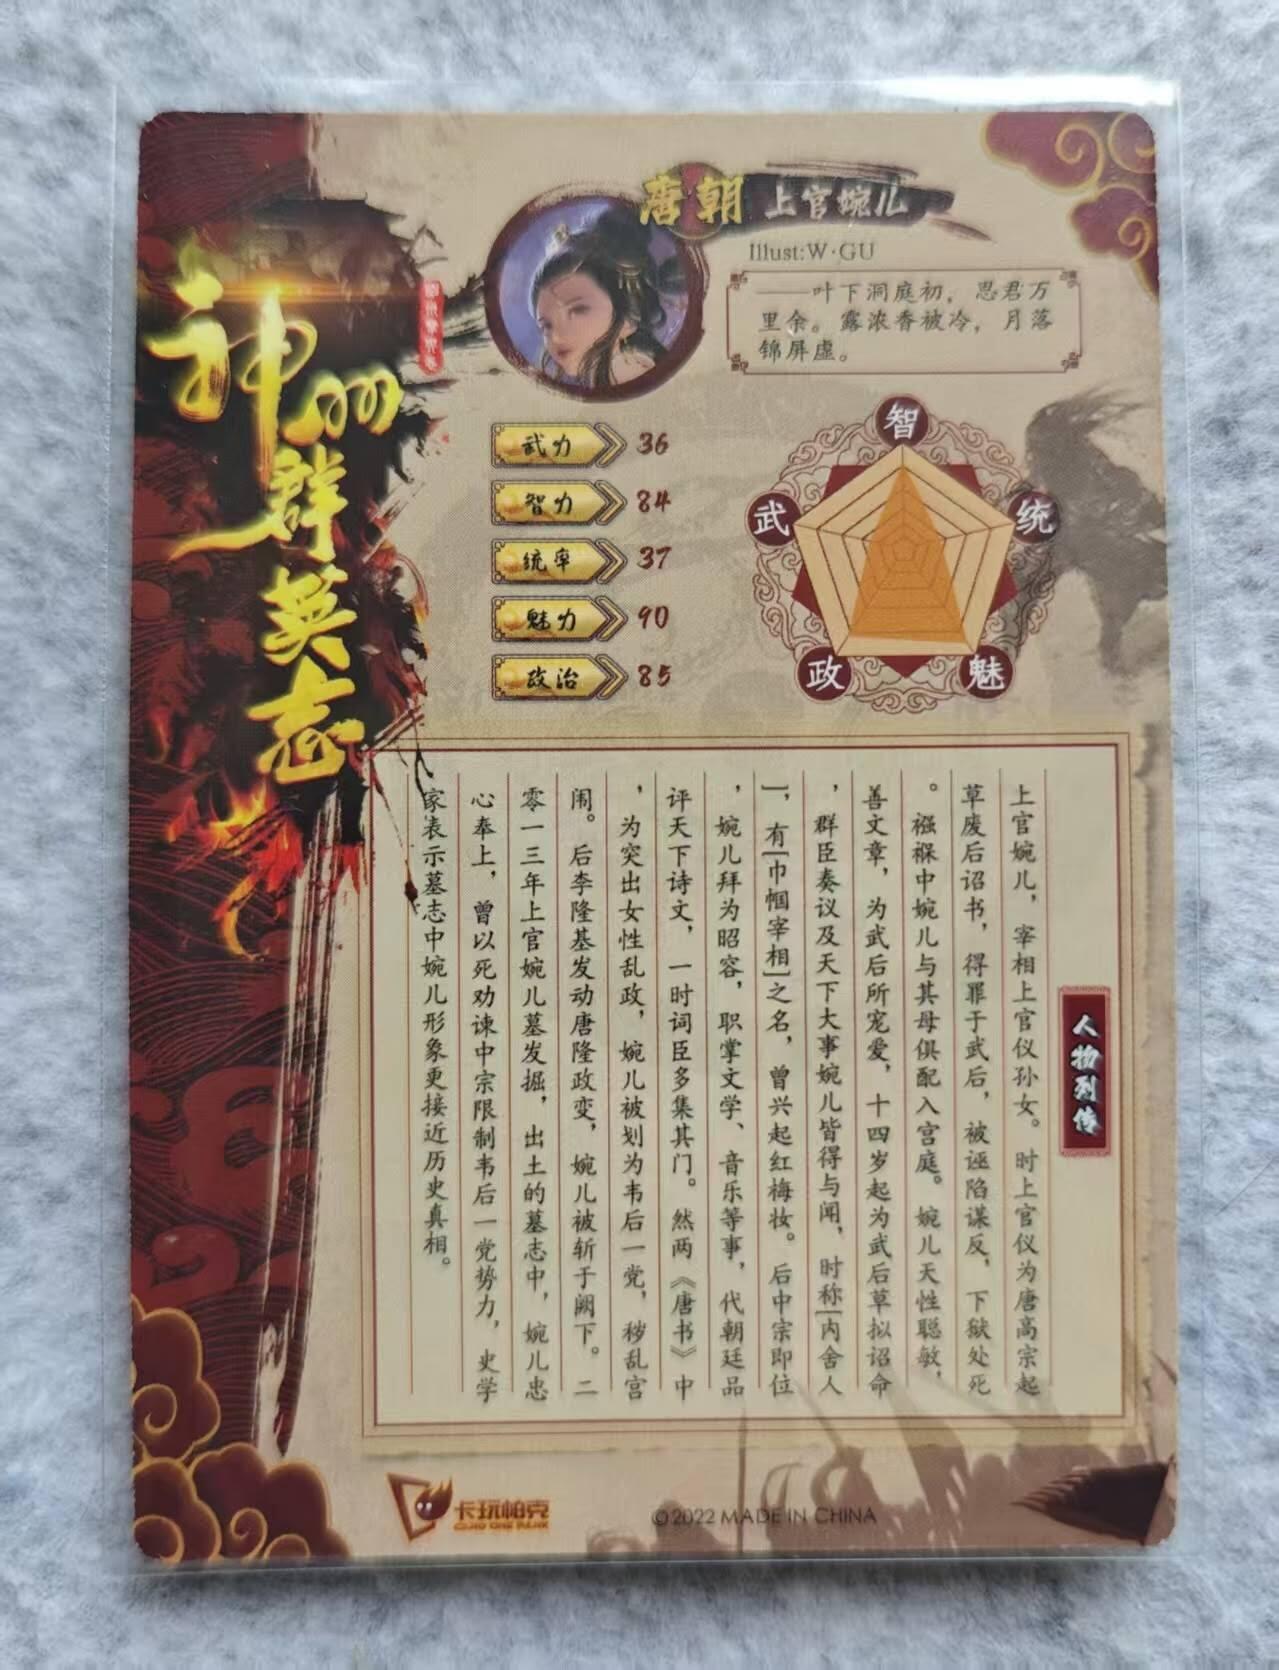 神州群英志
唐朝 上官婉儿
Illust:W·GU
——叶下洞庭初，思君万
里余。露浓香被冷，月落
锦屏虚。
武力 36
智力 84
统率 37
魅力 90
政治 85
智
武
统
政
魅
人物列传
上官婉儿，宰相上官仪孙女。时上官仪为唐高宗起
草废后诏书，得罪于武后，被诬陷谋反，下狱处死
。襁褓中婉儿与其母俱配入宫庭。婉儿天性聪敏，
善文章，为武后所宠爱，十四岁起为武后草拟诏命
，群臣奏议及天下大事婉儿皆得与闻，时称[内舍人
]，有[巾帼宰相]之名，曾兴起红梅妆。后中宗即位
，婉儿拜为昭容，职掌文学、音乐等事，代朝廷品
评天下诗文，一时词臣多集其门。然两《唐书》中
，为突出女性乱政，婉儿被划为韦后一党，秽乱宫
闱。后李隆基发动唐隆政变，婉儿被斩于阙下。二
零一三年上官婉儿墓发掘，出土的墓志中，婉儿忠
心奉上，曾以死劝谏中宗限制韦后一党势力，史学
家表示墓志中婉儿形象更接近历史真相。
卡玩帕克
©2022 MADE IN CHINA